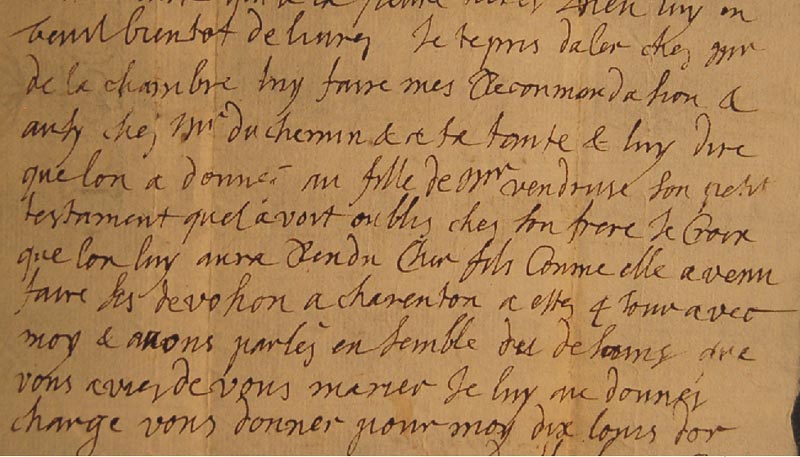 luy en
bientot de livres Je te pris daler chez mr
de la chambre luy faire mes Reconmendation &
ausy chez Mr du chemin & a ta tante & luy dire
que lon a donne au fille de Mr vendruse son petit
testament quel avoit oublis chez son frere Je Croix
que lon luy aura Rendu Cher fils Comme elle a venu
faire ses devotion a charenton a estes 4 Jour avec
moy & avons parles en semble des que
vous avies de vous marier Je luy donnes
charge vous donner pour moy dix louis dor